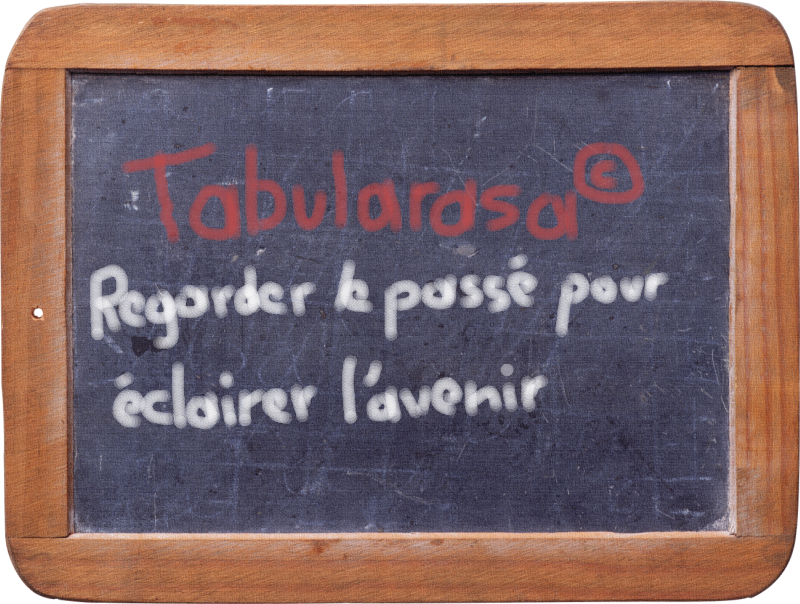 Tabularasa©
Regarder le passé pour
éclairer l'avenir